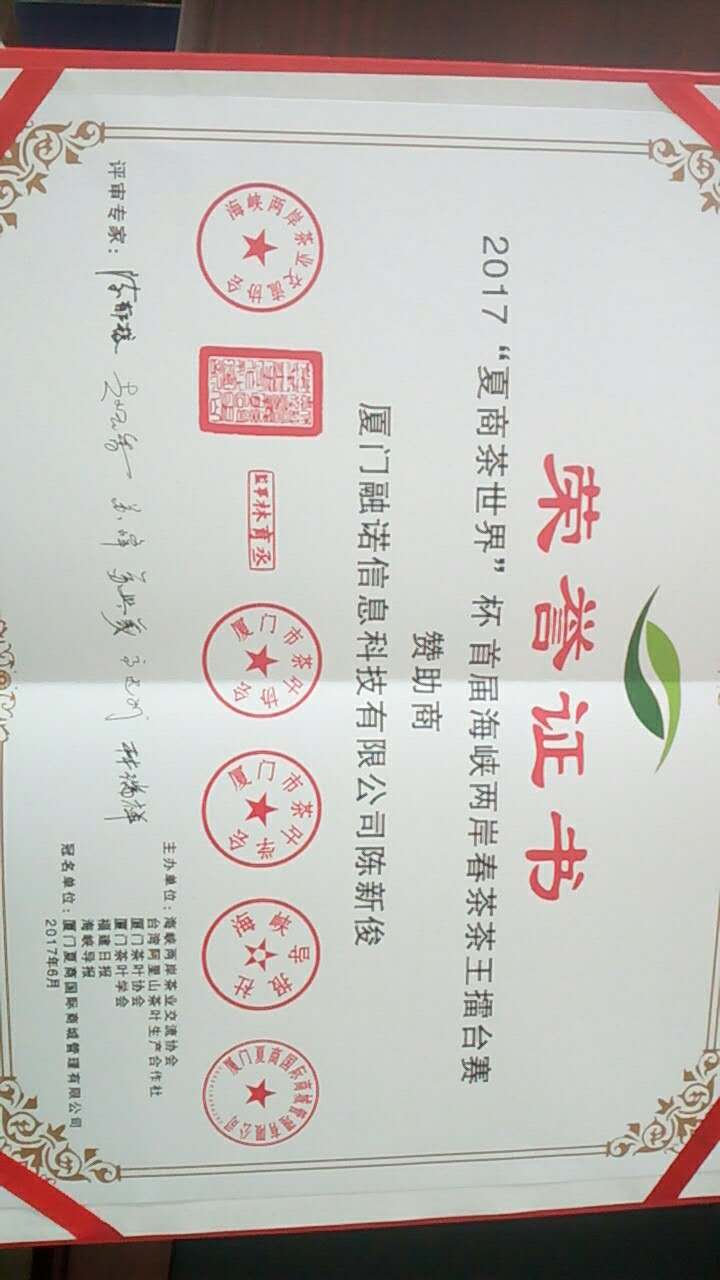 荣誉证书
2017“夏商茶世界”杯首届海峡两岸春茶茶王擂台赛
赞助商
厦门融诺信息科技有限公司陈新俊
海峡两岸茶业交流协会
监事林育丞
厦门市茶叶协会
厦门市茶叶学会
海峡导报社
厦门夏商国际商城管理有限公司
评审专家：
林瑞祥
主办单位：海峡两岸茶业交流协会
台湾阿里山茶叶生产合作社
厦门茶叶协会
厦门茶叶学会
福建日报
海峡导报
冠名单位：厦门夏商国际商城管理有限公司
2017年6月